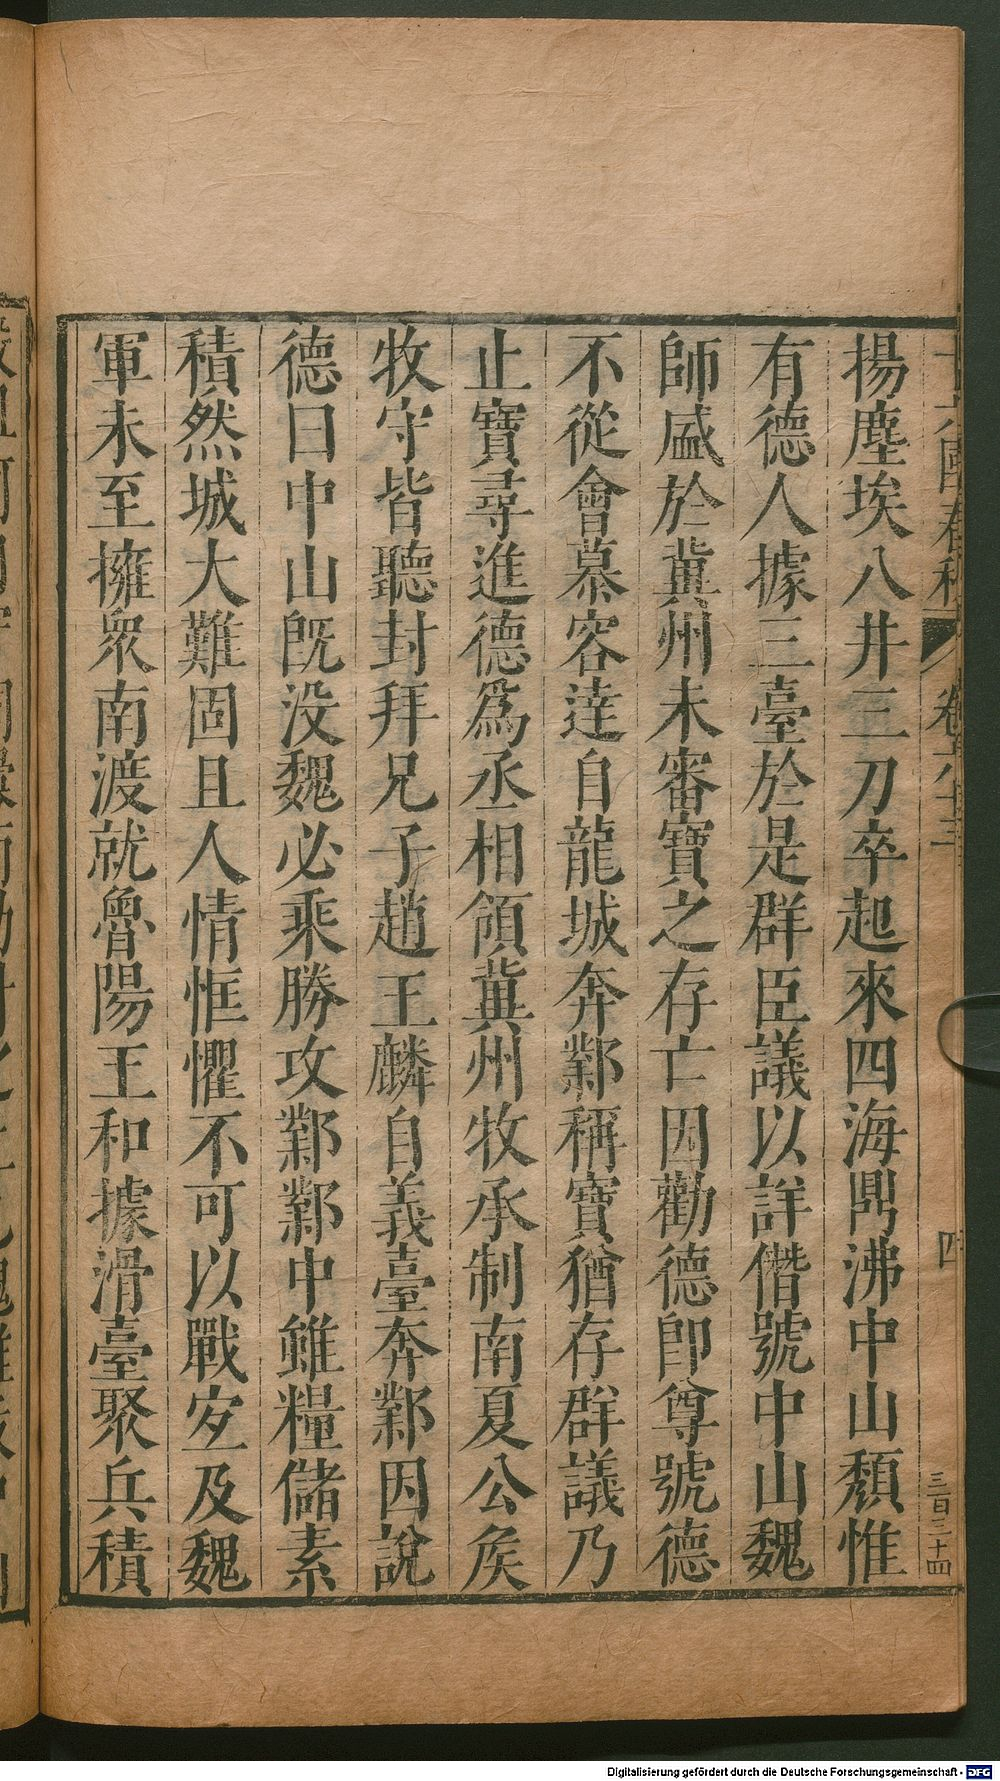 十六國春秋 卷六十三 四 三百二十四
揚塵埃八井三刀卒起來四海鼎沸中山頹惟
有德人據三臺於是群臣議以詳僭號中山魏
師盛於冀州未審寶之存亡因勸德卽尊號德
不從會慕容達自龍城奔鄴稱寶猶存群議乃
止寶尋進德爲丞相領冀州牧承制南夏公矦
牧守皆聽封拜兄子趙王麟自義臺奔鄴因說
德曰中山旣没魏必乘勝攻鄴鄴中雖糧儲素
積然城大難固且人情恇懼不可以戰宜及魏
軍未至擁衆南渡就魯陽王和據滑臺聚兵積
Digitalisierung gefördert durch die Deutsche Forschungsgemeinschaft - DFG